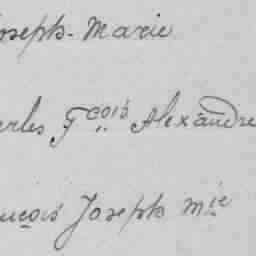 oseph-Marie
arles Fçois Alexandre
ançois Joseph Mie